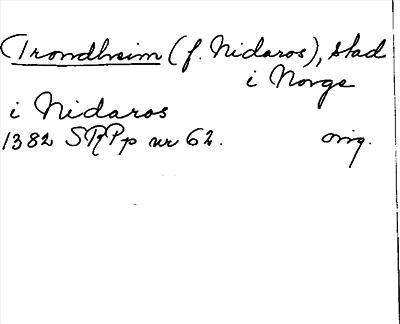 Trondheim (f. Nidaros), stad
i Norge
i Nidaros
1382 SRPp nr 62. orig.